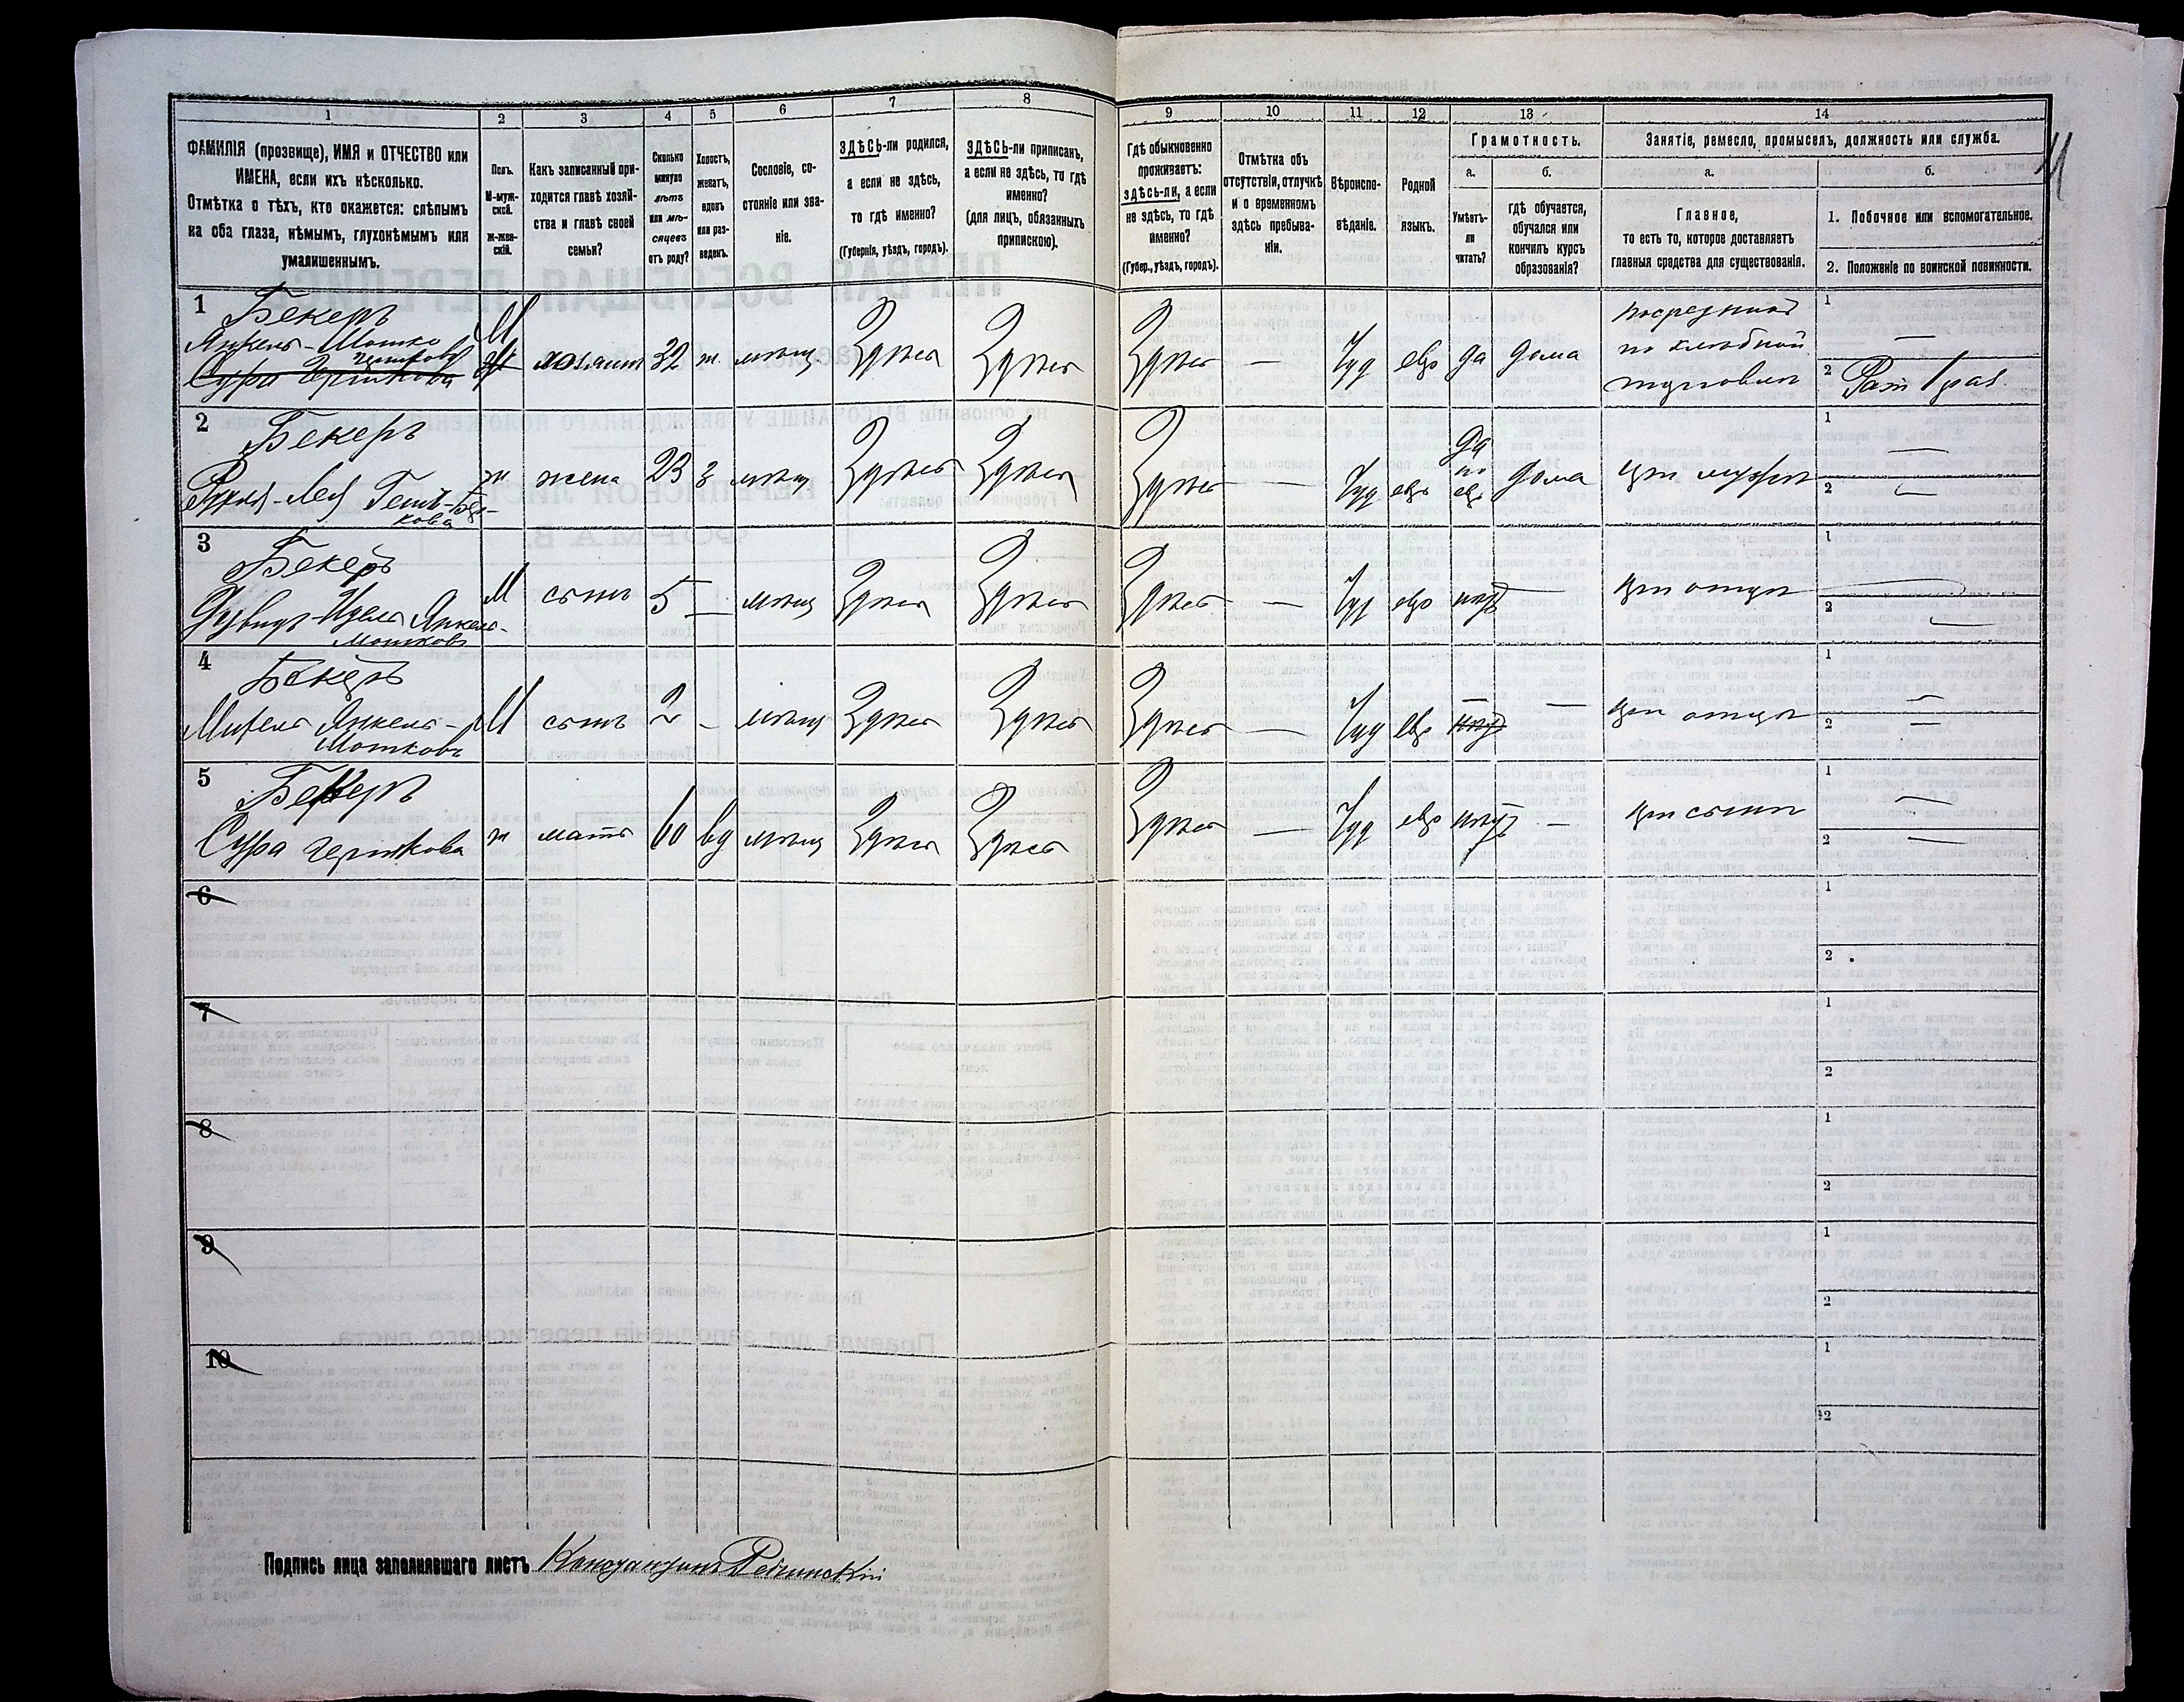 1 2 3 4 5 6 7 8
ФАМИЛІЯ (прозвище), ИМЯ и ОТЧЕСТВО или
ИМЕНА, если ихъ нѣсколько.
Отмѣтка о тѣхъ, кто окажется: слѣпымъ
на оба глаза, нѣмымъ, глухонѣмымъ или
умалишеннымъ.
Полъ.
М-муж-
ской.
ж-жен-
скій.
Какъ записанный при-
ходится главѣ хозяй-
ства и главѣ своей
семьи?
Сколько
минуло
лѣтъ
или мѣ-
сяцевъ
отъ роду?
Холостъ,
женатъ,
вдовъ
или раз-
веденъ.
Сословіе, со-
стояніе или зва-
ніе.
ЗДѢСЬ-ли родился,
а если не здѣсь,
то гдѣ именно?
(Губернія, уѣздъ, городъ).
ЗДѢСЬ-ли приписанъ,
а если не здѣсь, то гдѣ
именно?
(для лицъ, обязанныхъ
припискою).
9 10 11 12 13 14
Гдѣ обыкновенно
проживаетъ:
здѣсь-ли, а если
не здѣсь, то гдѣ
именно?
(Губер., уѣздъ, городъ).
Отмѣтка объ
отсутствіи, отлучкѣ
и о временномъ
здѣсь пребыва-
ніи.
Вѣроиспо-
вѣданіе.
Родной
языкъ.
Грамотность.
а.
Умѣетъ-
ли
читать?
б.
гдѣ обучается,
обучался или
кончилъ курсъ
образованія?
Занятіе, ремесло, промыселъ, должность или служба.
а.
Главное,
то есть то, которое доставляетъ
главныя средства для существованія.
б.
1. Побочное или вспомогательное.
2. Положеніе по воинской повинности.
1 Бекеръ
Янкель-Мошко
Сура Гершкова
М хозяин 32 ж. мѣщ Здѣсь Здѣсь Здѣсь — Іуд евр да дома
по хлѣбной
торговли
1 —
2
2 Бекеръ
ж жена 23 з мѣщ Здѣсь Здѣсь Здѣсь — Іуд евр да по евр дома при мужѣ
1 —
2 —
3 Бекеръ
Янкель-
Мошковъ
М сынъ 5 — мѣщ Здѣсь Здѣсь Здѣсь — Іуд евр нѣтъ — при отцѣ
1
2 —
4 Бекеръ
Янкель-
Мошковъ
М сынъ 2 - мѣщ Здѣсь Здѣсь Здѣсь — Іуд евр — нѣтъ — при отцѣ
1 —
2 —
5 Бекеръ
Сура Гершкова
ж мать 60 вд мѣщ Здѣсь Здѣсь Здѣсь — Іуд евр нѣтъ — при сынѣ
1 —
2 —
6 1
2
7 1
2
8 1
2
9 1
2
10 1
2
Подпись лица заполнявшаго листъ